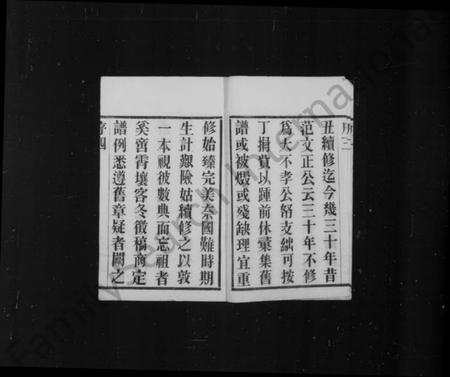 序三
丑續修迄今幾三十年昔
范文正公云三十年不修
為大不孝公弩支絀可按
丁捐貲以踵前休蒐集舊
譜或被燬或殘缺理宜重
修始臻完美奈國難時期
生計艱險姑續修之以敦
一本視彼數典而忘祖者
奚啻霄壤客冬徵稿商定
譜例悉遵舊章疑者闕之
序四
Family Search International